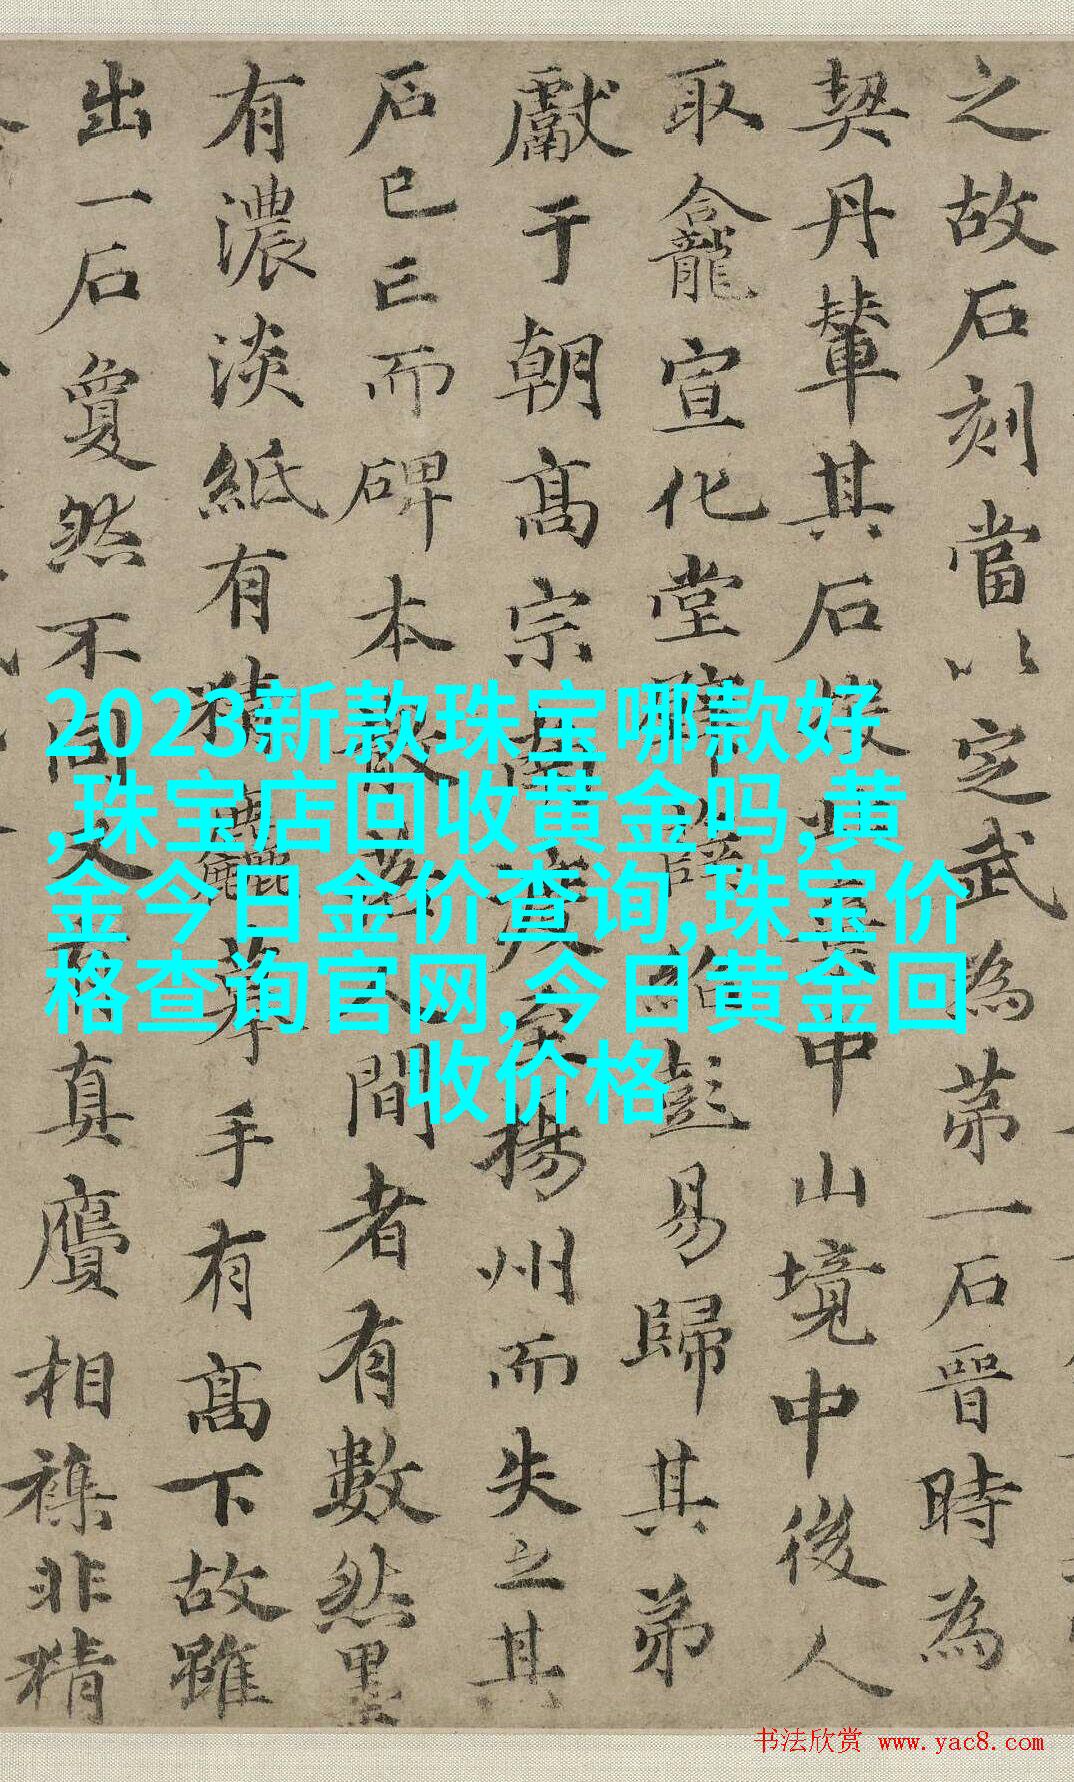 之故石刻當以定武為苐一石晉時為
契丹輦其石後棄中山境中後人
取龕宣化堂紹彭易歸其弟
獻于朝高宗南渡至揚州而失之其
石已亡而碑本散落人間者有數然墨
有濃淡紙有精麤摹手有高下故雖
出一石敻然不同又有真贋相襍非精
2023新款珠宝哪款好
,珠宝店回收黄金吗,黄
金今日金价查询,珠宝价
格查询官网,今日黄金回
收价格
书法欣赏 www.yac8.com